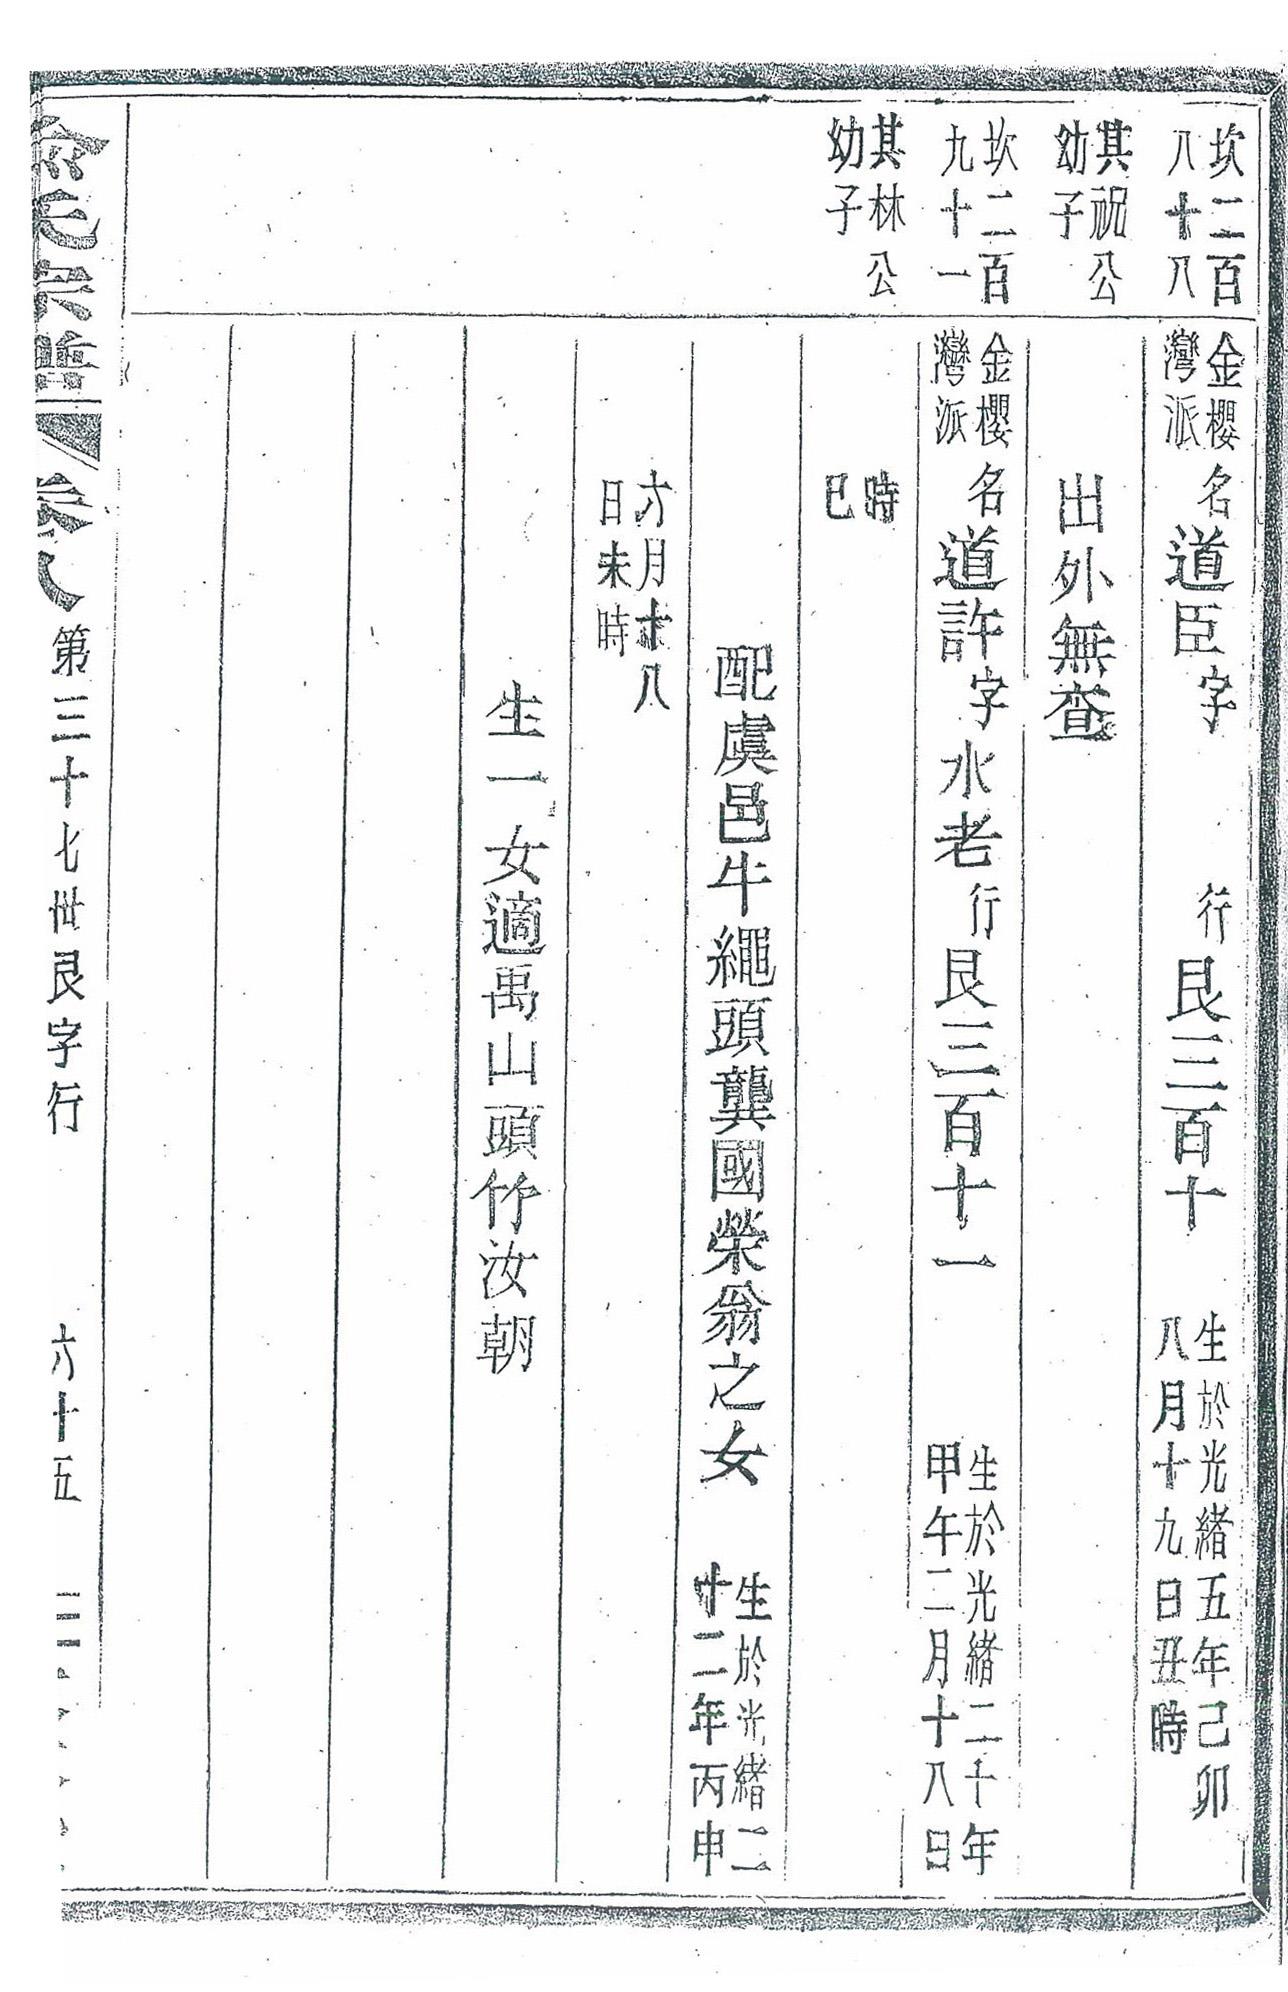 坎二百
八十八
金櫻
灣派
名道臣字 行艮三百十
生於光緒五年己卯
八月十九日丑時
其祝公
幼子
出外無查
坎二百
九十一
金櫻
灣派
名道許字水老行艮三百十一
生於光緒二十年
甲午二月十八日
其林公
幼子
時
巳
配虞邑牛繩頭龔國榮翁之女
生於光緒二
十二年丙申
六月十八
日未時
生一女適禹山頭竹汝朝
俞氏宗譜 卷八 第三十七世艮字行 六十五